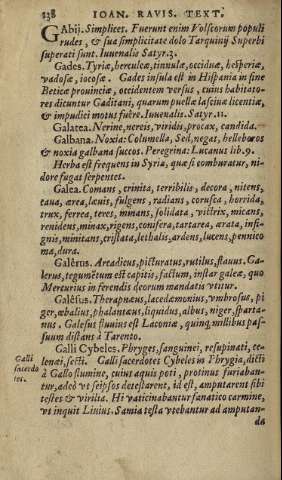 238 IOAN. RAVIS. TEXT.
GAbij. Simplices. Fuerunt enim Volscorum populi
rudes, & sua simplicitate dolo Tarquinij Superbi
superati sunt. Iuuenalis Satyr.3.
Gades. Tyriæ, herculeæ, tinnulæ, occiduæ, hesperiæ,
vadosæ, iocosæ. Gades insula est in Hispania in fine
Beticæ prouinciæ, occidentem versus, cuius habitato-
res dicuntur Gaditani, quarum puellæ lasciuæ licentiæ,
& impudici motus fuêre. Iuuenalis. Satyr.11.
Galatea. Nerine, nereis, viridis, procax, candida.
Galbana. Noxia: Columella, Sed, negat, helleboros
& noxia galbana succos. Peregrina: Lucanus lib.9.
Herba est frequens in Syria, quæ si comburatur, ni-
dore fugat serpentes.
Galea. Comans, crinita, terribilis, decora, nitens,
taua, ærea, læuis, fulgens, radians, corusca, horrida,
trux, ferrea, teres, minans, solidata, victrix, micans,
renidens, minax, rigens, conifera, tartarea, ærata, insi-
gnis, minitans, cristata, lethalis, ardens, lucens, pennico
ma, dura.
Galērus. Arcadicus, picturatus, rutilus, flauus. Ga-
lerus, tegumētum est capitis, factum, instar galeæ, quo
Mercurius in ferendis deorum mandatis vtitur.
Galēsus. Therapnæus, lacedæmonius, vmbrosus, pi
ger, œbalius, phalantæus, liquidus, albus, niger, sparta-
nus. Galesus fluuius est Laconiæ, quinq, millibus pas-
suum distans à Tarento.
Galli Cybeles. Phryges, sanguinei, resupinati, te-
Galli sacerdotes
lenæi, secti. Galli sacerdotes Cybeles in Phrygia, dicti
à Gallo flumine, cuius aquis poti, protinus furiaban-
tur, adeò vt seipsos detestarent, id est, amputarent sibi
testes & virilia. Hi vaticinabantur fanatico carmine,
vt inquit Linius. Samia testa vtebantur ad amputan-
do